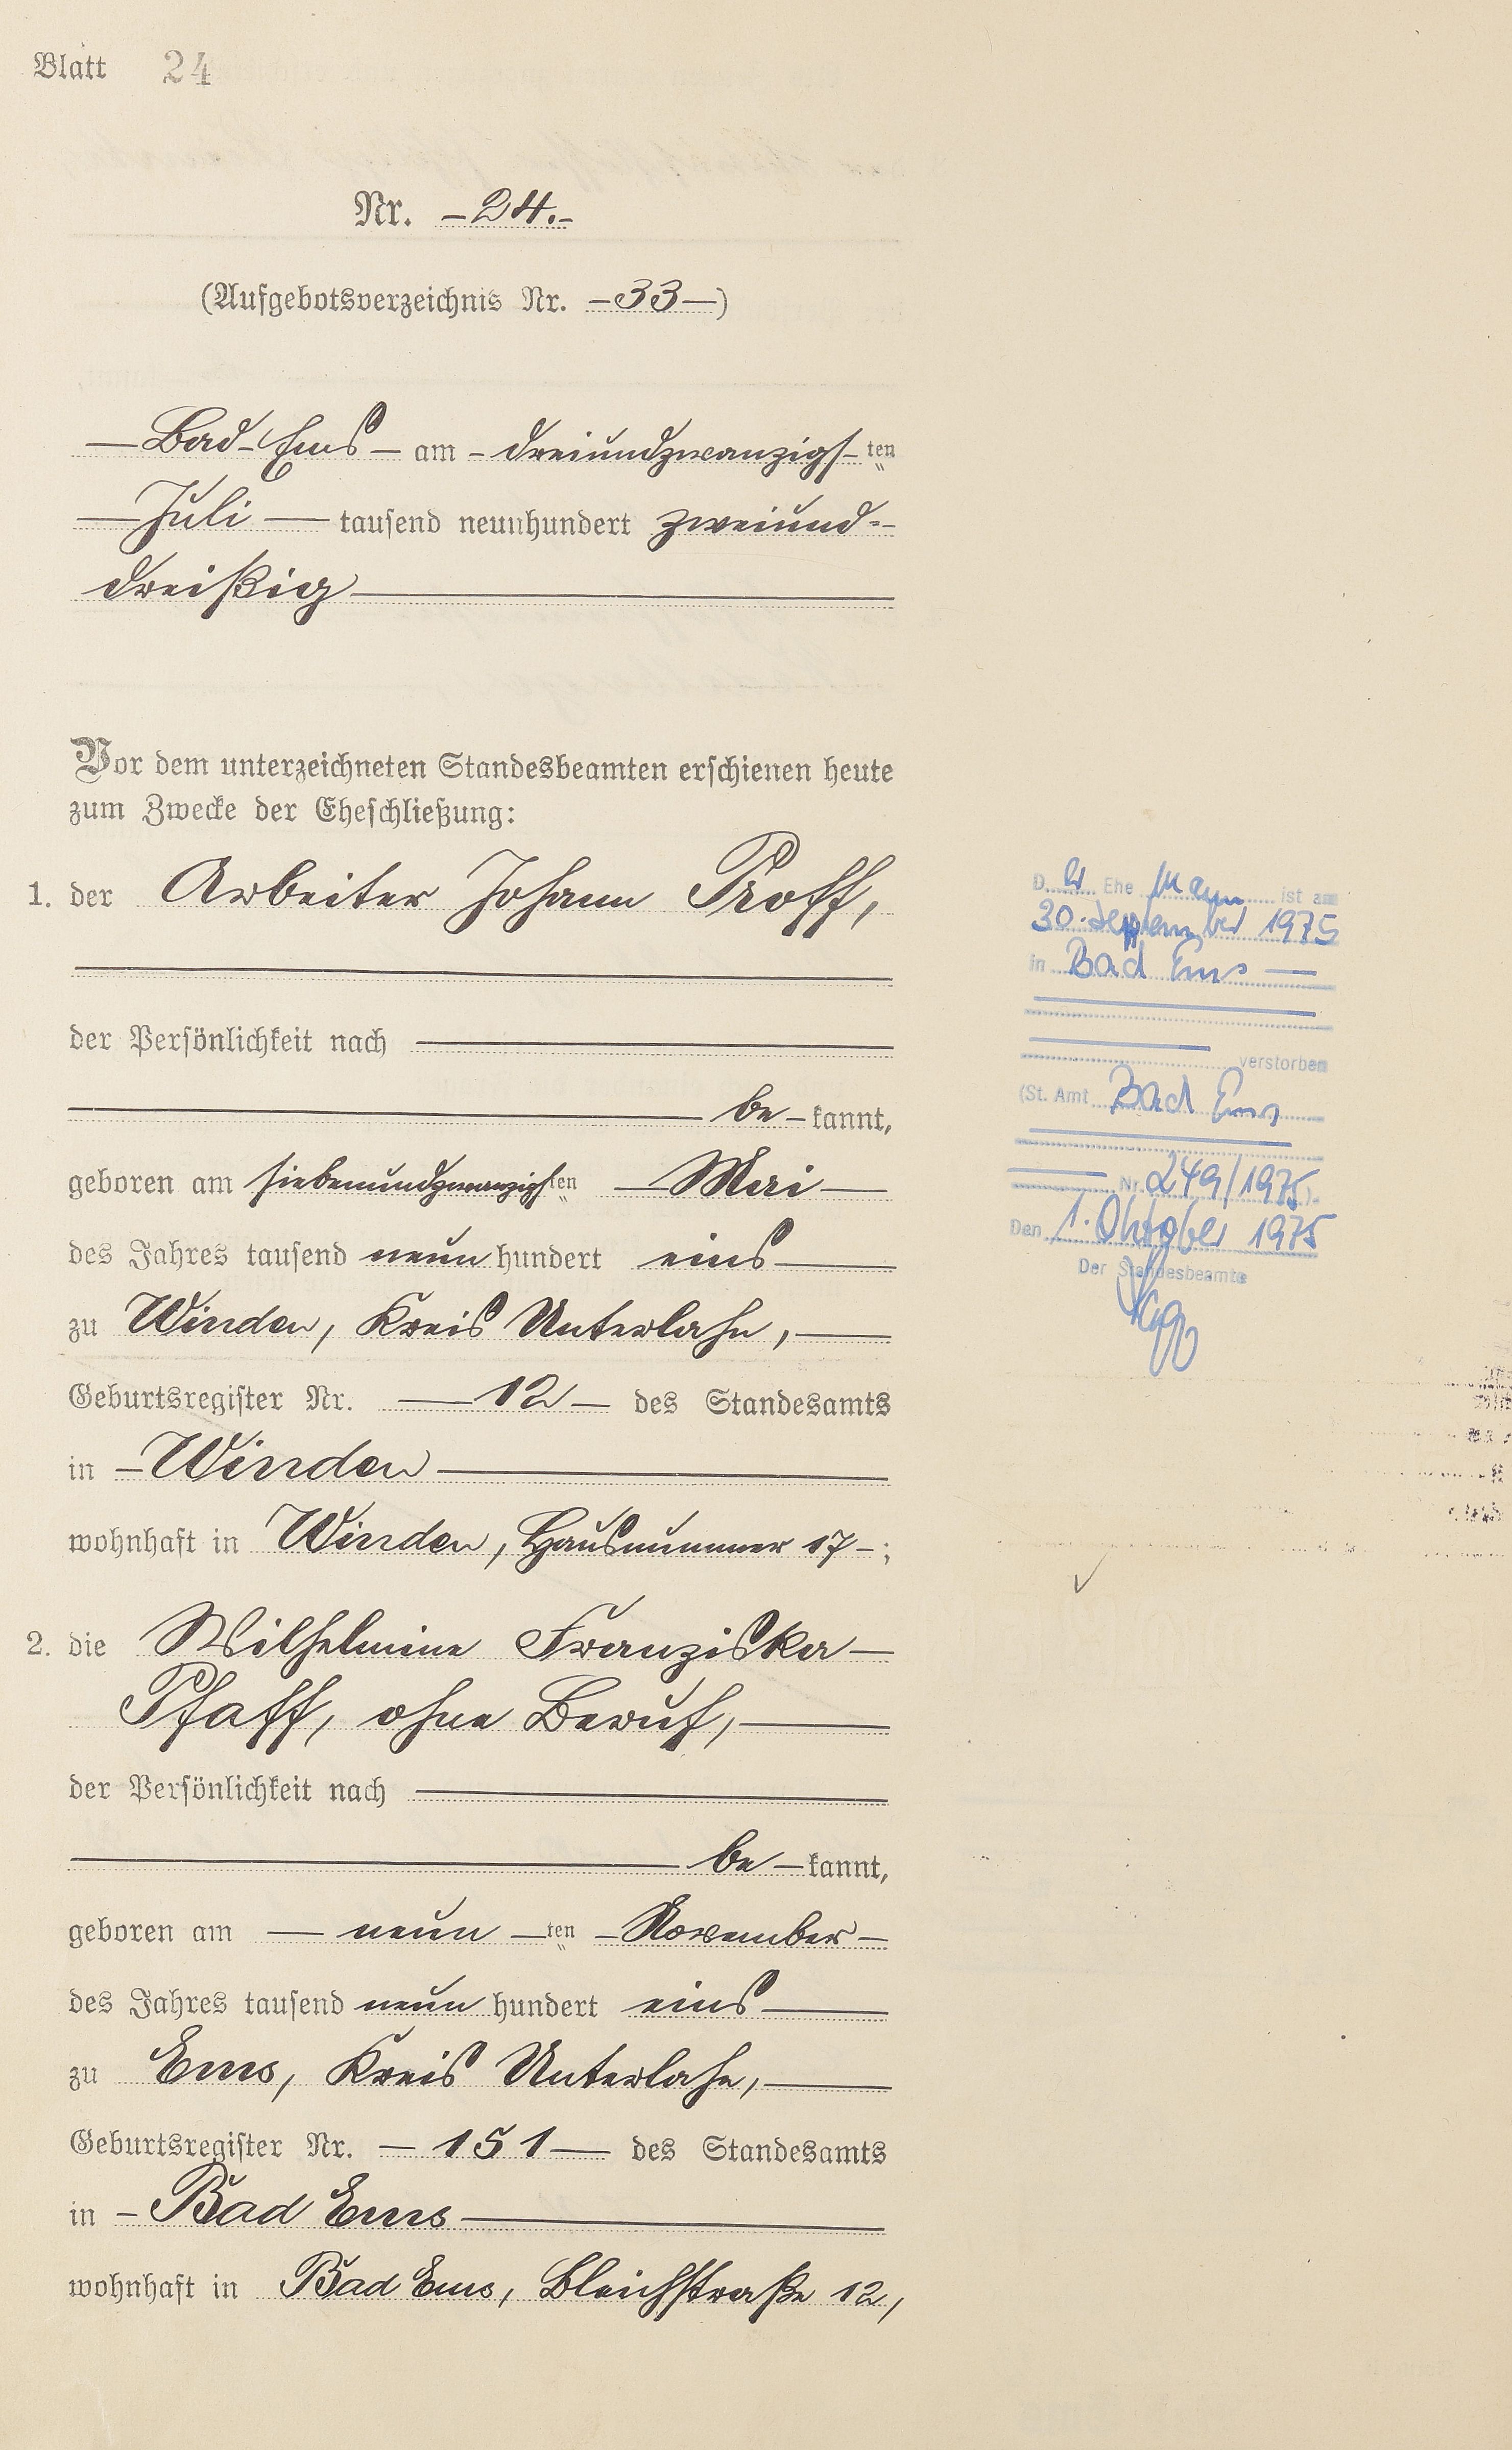 Blatt 24
Nr. – 24. –
(Aufgebotsverzeichnis Nr. – 33 –)
— Bad-Ems – am – dreiundzwanzigs – ten
— Juli — tausend neunhundert zweiund=
dreißig
Vor dem unterzeichneten Standesbeamten erschienen heute
zum Zwecke der Eheschließung:
1. der Arbeiter Johann Proff,
der Persönlichkeit nach
be – kannt,
geboren am siebenundzwanzigsten — Mai —
des Jahres tausend neun hundert eins
zu Winden, Kreis Unterlahn,
Geburtsregister Nr. — 12 — des Standesamts
in – Winden
wohnhaft in Winden, Hausnummer 17 – ;
2. die Wilhelmine Franziska –
Pfaff, ohne Beruf,
der Persönlichkeit nach
be – kannt,
geboren am — neun – ten – November –
des Jahres tausend neun hundert eins
zu Ems, Kreis Unterlahn,
Geburtsregister Nr. — 151 — des Standesamts
in – Bad Ems
wohnhaft in Bad Ems, Bleichstraße 12,
D er Ehe Mann ist am
30. September 1975
in Bad Ems —
verstorben
(St. Amt Bad Ems
Nr. 249/1975).
Den 1. Oktober 1975
Der Standesbeamte